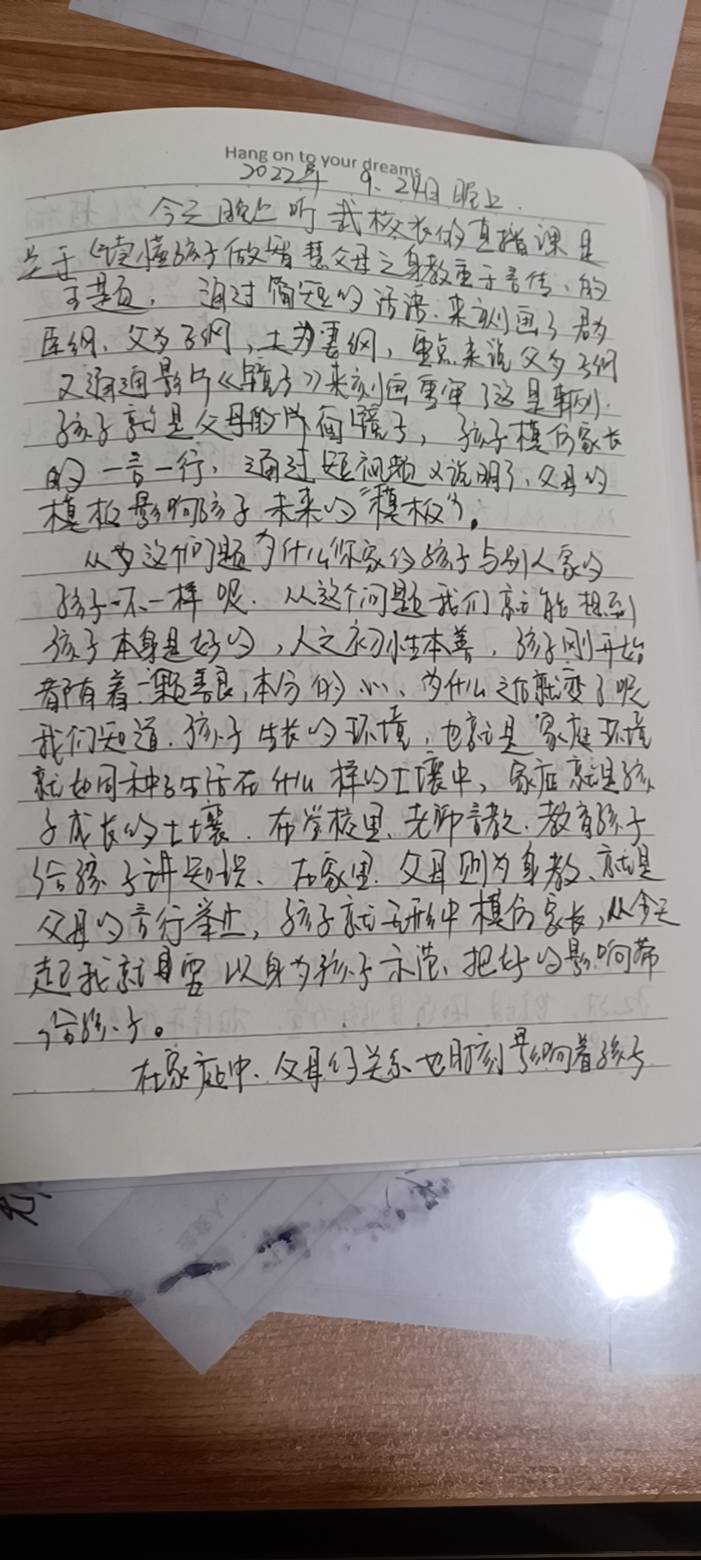 Hang on to your dreams
2022年 9、24日 晚上.
今天晚上听武校长的直播课是
关于《读懂孩子做智慧父母之身教重于言传、的
主题. 通过简短的话语.来刻画了君为
臣纲、父为子纲,夫为妻纲,重点来说父为子纲
又通过影片《镜子》来刻画
孩子就是父母的 镜子, 孩子模仿家长
的一言一行, 通过短视频又说明了、父母的
模板影响孩子未来的“模板”。
从为这个问题为什么你家的孩子与别人家的
孩子不一样呢. 从这个问题我们就能想到
孩子本身是好的,人之初性本善, 孩子刚开始
都有着一颗善良,本分的心、为什么之后就变了呢
我们知道.孩子生长的环境,也就是家庭环境
就如同种子生活在什么样的土壤中, 家庭就是孩
子成长的土壤. 在学校里、老师言教.教育孩子
给孩子讲知识、在家里.父母则为身教、就是
父母的言行举止,孩子就无形中模仿家长,从今天
起我就要以身为孩子示范、把好的影响带
给孩子。
在家庭中、父母的关系也时刻影响着孩子